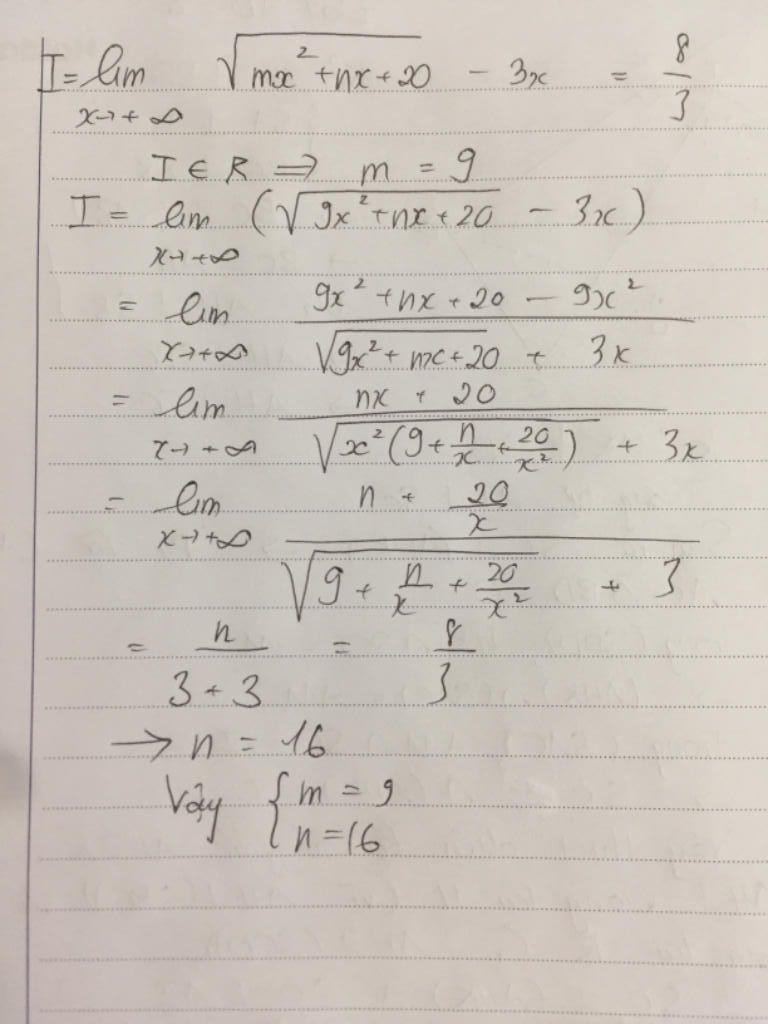 I = lim √(mx² + nx + 20) − 3x = 8/3
x→+∞
I ∈ R ⟹ m = 9
I = lim (√(9x² + nx + 20) − 3x)
x→+∞
= lim (9x² + nx + 20 − 9x²)/(√(9x² + nx + 20) + 3x)
x→+∞
= lim (nx + 20)/(√(x²(9 + n/x + 20/x²)) + 3x)
x→+∞
= lim (n + 20/x)/(√(9 + n/x + 20/x²) + 3)
x→+∞
= n/(3 + 3) = 8/3
→ n = 16
Vậy { m = 9
n = 16